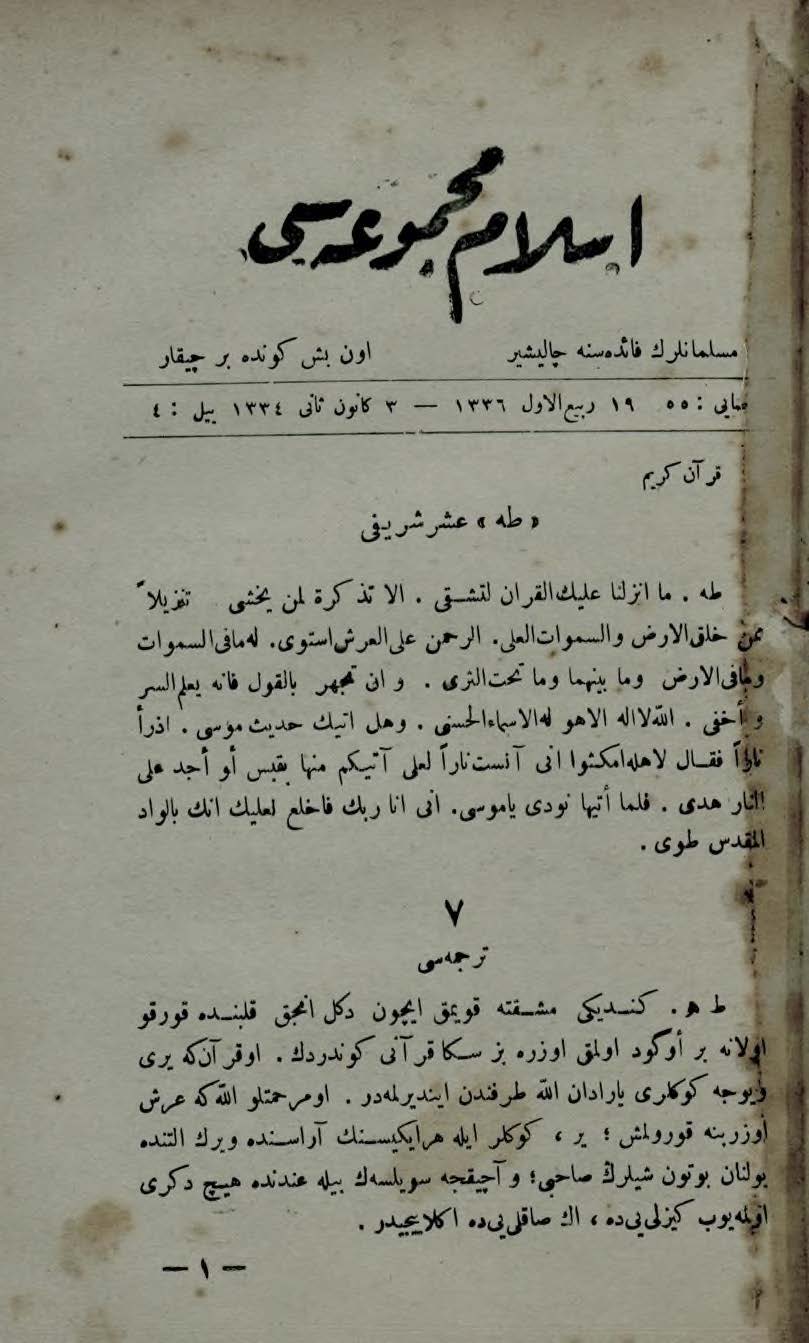 اسلام مجموعه سی
مسلمانلرك فائده‌سنه چالیشیر اون بش كونده بر چیقار
صایی : ٥٥ ١٩ ربیع‌الاول ١٣٣٦ — ٣ كانون ثانی ١٣٣٤ ییل : ٤
قرآن كریم
« طه » عشر شریفی
طه . ما انزلنا علیك‌القران لتشقی . الا تذكرة لمن یخشی تنزیلاً
ممن خلق‌الارض والسموات‌العلی. الرحمن علی‌العرش‌استوی. له‌مافی‌السموات
ومافی‌الارض وما بینهما وما تحت‌الثری . و ان تجهر بالقول فانه یعلم‌السر
و أخفی . الله‌لااله الاهو له‌الاسماءالحسنی . وهل اتیك حدیث موسی . اذرأ
ناراً فقال لاهله‌امكثوا انی آنست‌ناراً لعلی آتیكم منها بقبس أو أجد علی
النار هدی . فلما أتیها نودی یاموسی. انی انا ربك فاخلع نعلیك انك بالواد
المقدس طوی .
٧
ترجمه‌سی
ط ه . كندیكی مشقته قویمق ایچون دكل انجق قلبنده قورقو
اولانه بر أوگود اولمق اوزره بز سكا قرآنی كوندردك . اوقرآن‌كه یری
ویوجه كوكلری یارادان الله طرفندن ایندیرلمه‌در . اومرحمتلو الله‌كه عرش
اوزرینه قورولمش ؛ یر ، كوكلر ایله هرایكیسنك آراسنده ویرك التنده
بولنان بوتون شیلرڭ صاحبی؛ و آچیقجه سویلسه‌ك بیله عندنده هیچ دكری
اولمه‌یوب كیزلی‌یی‌ده ، اڭ صاقلی‌یی‌ده اكلاییجیدر .
— ١ —